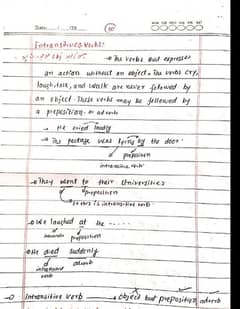 Date:
Intransitive Verbs:
The verbs that expresses
an action without an object. The verbs cry,
laugh, talk, and walk are never followed by
an object. These verbs may be followed by
a preposition or adverb
He cried loudly
The package was lying by the door.
preposition
intransitive verb
They went to their Universities
preposition
so this is intransitive verb
We laughed at the -----
preposition
He died suddenly
intransitive verb
adverb
Intransitive verb object but preposition adverb